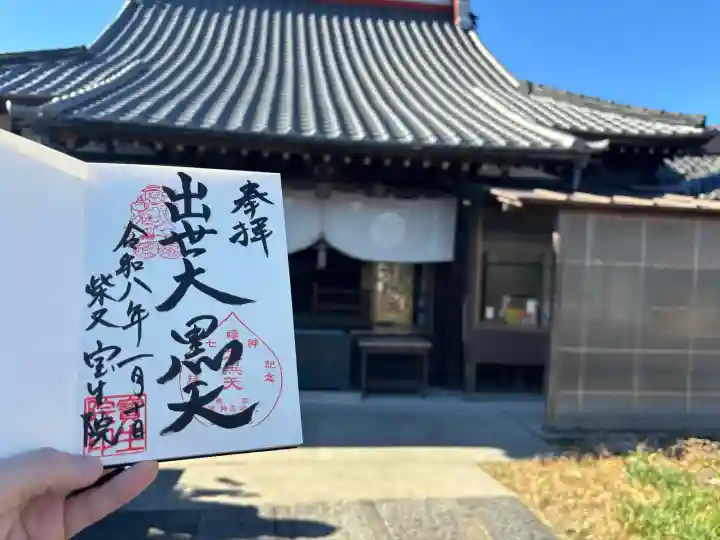 奉拝
出世大黒天
令和八年一月十日
柴又 宝生院
七福神
記念
黒天